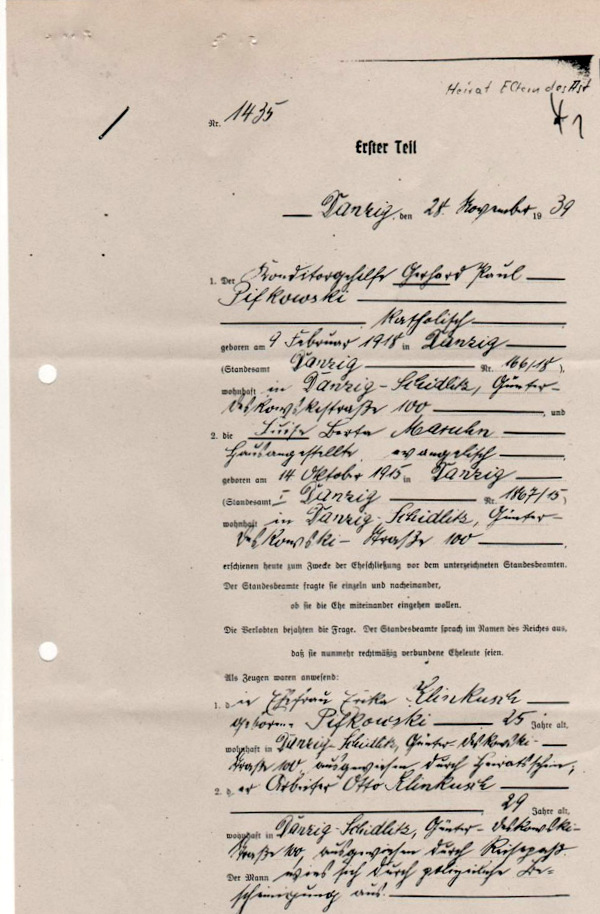 Heirat Eltern des Ast
Nr. 1435
Erster Teil
Danzig, den 28. November 1939
1. Der Konditorgehilfe Gerhard Paul
Pifkowski
katholisch
geboren am 9 Februar 1918 in Danzig
(Standesamt Danzig Nr. 166/18),
wohnhaft in Danzig-Schidlitz, Günter-
Deskowskistraße 100, und
2. die Luise Berta Maruhn
Hausangestellte, evangelisch
geboren am 14 Oktober 1915 in Danzig
(Standesamt I Danzig Nr. 1867/15)
wohnhaft in Danzig-Schidlitz, Günter-
Deskowski-Straße 100,
erschienen heute zum Zwecke der Eheschließung vor dem unterzeichneten Standesbeamten.
Der Standesbeamte fragte sie einzeln und nacheinander,
ob sie die Ehe miteinander eingehen wollen.
Die Verlobten bejahten die Frage. Der Standesbeamte sprach im Namen des Reiches aus,
daß sie nunmehr rechtmäßig verbundene Eheleute seien.
Als Zeugen waren anwesend:
1. die Ehefrau Erika Klinkusch
geborene Pifkowski 25 Jahre alt,
wohnhaft in Danzig-Schidlitz, Günter Deskowski-
Straße 100 ausgewiesen durch Heiratsschein;
2. der Arbeiter Otto Klinkusch
29 Jahre alt,
wohnhaft in Danzig-Schidlitz, Günter-Deskowski-
Straße 100, ausgewiesen durch Reisepaß.
Der Mann wies sich durch polizeiliche Be-
scheinigung aus.